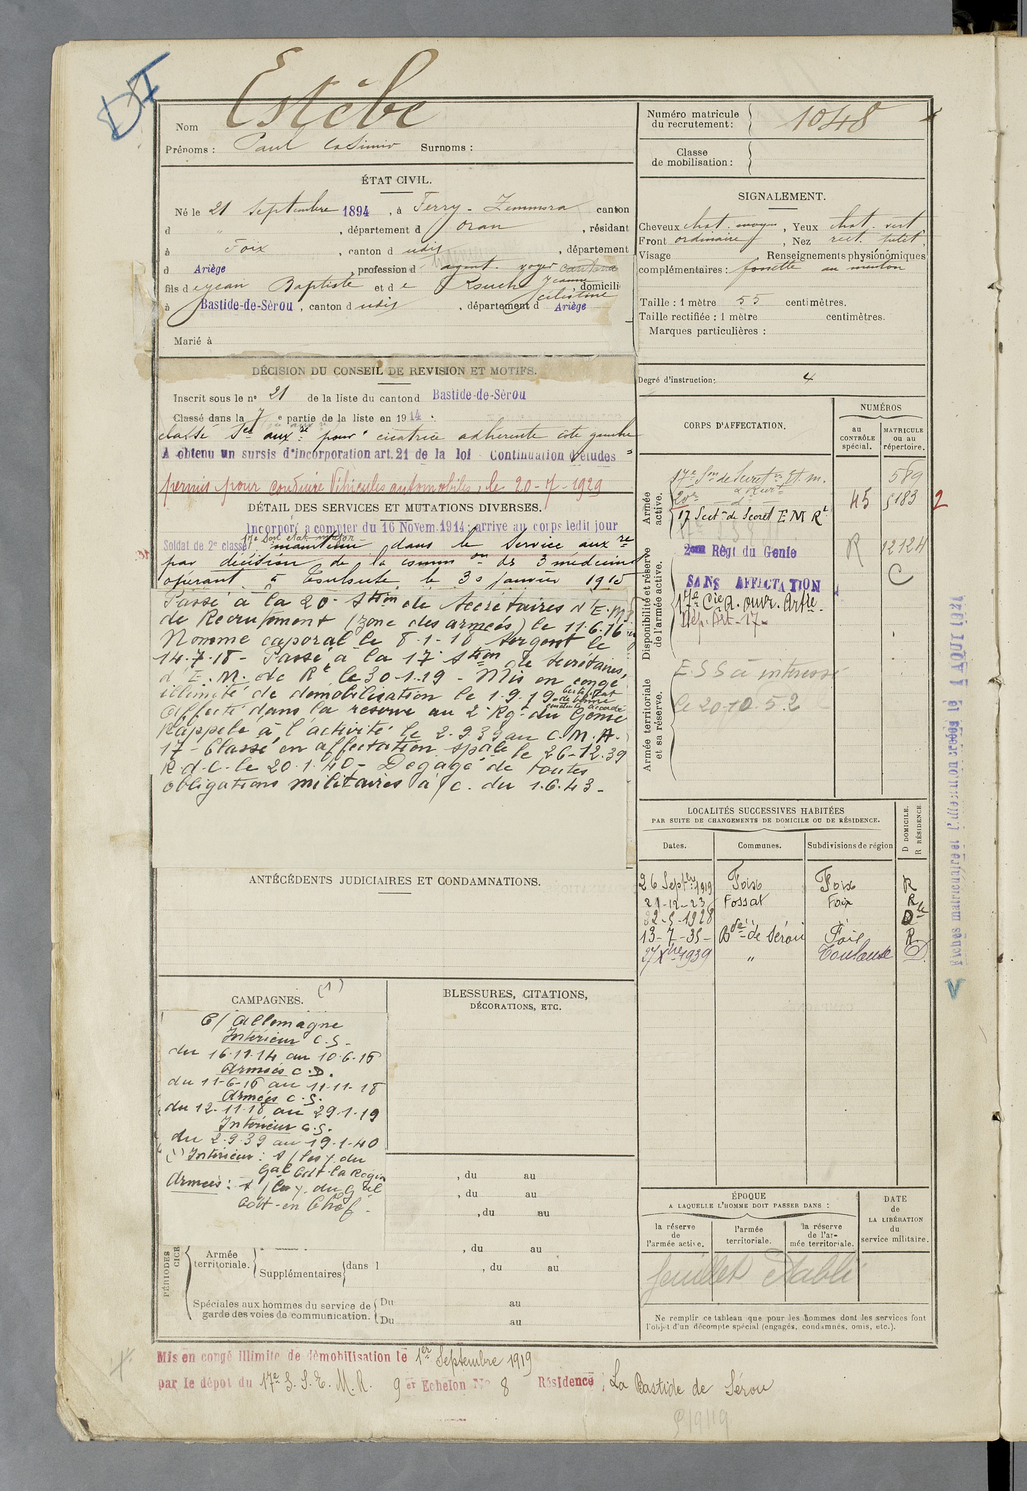 DI
Nom Estèbe
Prénoms : Paul Casimir Surnoms :
ÉTAT CIVIL.
Né le 21 Septembre 1894, à Ferry-Zemmora canton
d , département d Oran, résidant
à Foix, canton d udit, département
d Ariège, profession d agent voyer cantonal
fils de Jean Baptiste et de Rouch Jeanne Célestine, domicili
à Bastide-de-Sérou, canton d udit, département d Ariège
Marié à
DÉCISION DU CONSEIL DE REVISION ET MOTIFS.
Inscrit sous le nº 21 de la liste du canton d Bastide-de-Sérou
Classé dans la 7 e partie de la liste en 1914.
classé Sce auxre pour cicatrice adhérente côte gauche
A obtenu un sursis d'incorporation art. 21 de la loi Continuation d'études
permis pour conduire Véhicules automobiles, le 20-7-1929
DÉTAIL DES SERVICES ET MUTATIONS DIVERSES.
Incorporé à compter du 16 Novem. 1914; arrivé au corps ledit jour
Soldat de 2e classe maintenu dans le Service auxre
par décision de la common des 3 médecins
opérant à Toulouse le 30 janvier 1915
Passé à la 20e Stion de Secrétaires d'E.M.
de Recrutement (zone des armées) le 11.6.16
Nommé caporal le 8-1-18 Sergent le
14-7-18- Passé à la 17e Stion de Secrétaires,
d'E.M. de Rt le 30-1-19- Mis en congé
illimité de démobilisation le 1.9.19
Affecté dans la réserve au 2e Rgt du Génie
Rappelé à l'activité le 2.9.39 au C.M.A.
17- Classé en affectation spale le 26-12.39
R.d.C. le 20.1.40- Dégagé de toutes
obligations militaires à/c. du 1.6.43-
ANTÉCÉDENTS JUDICIAIRES ET CONDAMNATIONS.
CAMPAGNES. (1)
C/ Allemagne
Intérieur C.S-
du 16-11-14 au 10-6-16
Armées C.D.
du 11-6-16 au 11-11-18
Armées C.S.
du 12-11-18 au 29-1-19
Intérieur C.S.
du 2-9-39 au 19-1-40
(1) Intérieur: du
Gal Codt la Région
Armées: du Gal
Codt-en Chef-
BLESSURES, CITATIONS,
DÉCORATIONS, ETC.
, du au
, du au
, du au
, du au
, du au
Armée territoriale.
Supplémentaires dans l
Spéciales aux hommes du service de garde des voies de communication.
Du au
Du au
Mis en congé illimité de démobilisation le 1er Septembre 1919
par le dépôt du 17e S.S.E.M.R. 9 er Echelon Nº 8 Résidence : La Bastide de Sérou
Numéro matricule du recrutement : 1048
Classe de mobilisation :
SIGNALEMENT.
Cheveux chat. moyen, Yeux chat. vert
Front ordinaire, Nez rect.
Visage Renseignements physionomiques
complémentaires : fossette au menton
Taille : 1 mètre 55 centimètres.
Taille rectifiée : 1 mètre centimètres.
Marques particulières :
Degré d'instruction: 4
CORPS D'AFFECTATION.
NUMÉROS
au CONTRÔLE spécial.
MATRICULE ou au répertoire.
Armée active.
17e Son de Secret. Et. m. 589
20e 45 5183 2
17 Sect. de Secret E M Rt
Disponibilité et réserve de l'armée active.
2eme Régt du Génie R 12124
SANS AFFECTATION C
17e Cie R. ouvr. Artie-
Dép. Art-17e
Armée territoriale et sa réserve.
ESS à intéressé
le 20-10.52
LOCALITÉS SUCCESSIVES HABITÉES
PAR SUITE DE CHANGEMENTS DE DOMICILE OU DE RÉSIDENCE.
Dates. Communes. Subdivisions de région
D DOMICILE.
R RÉSIDENCE.
26 Septbre 1919 Foix Foix R
21-12-23 Fossat Foix R
22-5-1928 D
13-7-35- Bde de Sérou Foix R
27 Xbre 1939 " Toulouse D
ÉPOQUE
A LAQUELLE L'HOMME DOIT PASSER DANS :
la réserve de l'armée active.
l'armée territoriale.
la réserve de l'armée territoriale.
DATE de LA LIBÉRATION du service militaire.
feuillet établi
Ne remplir ce tableau que pour les hommes dont les services font
l'objet d'un décompte spécial (engagés, condamnés, omis, etc.).